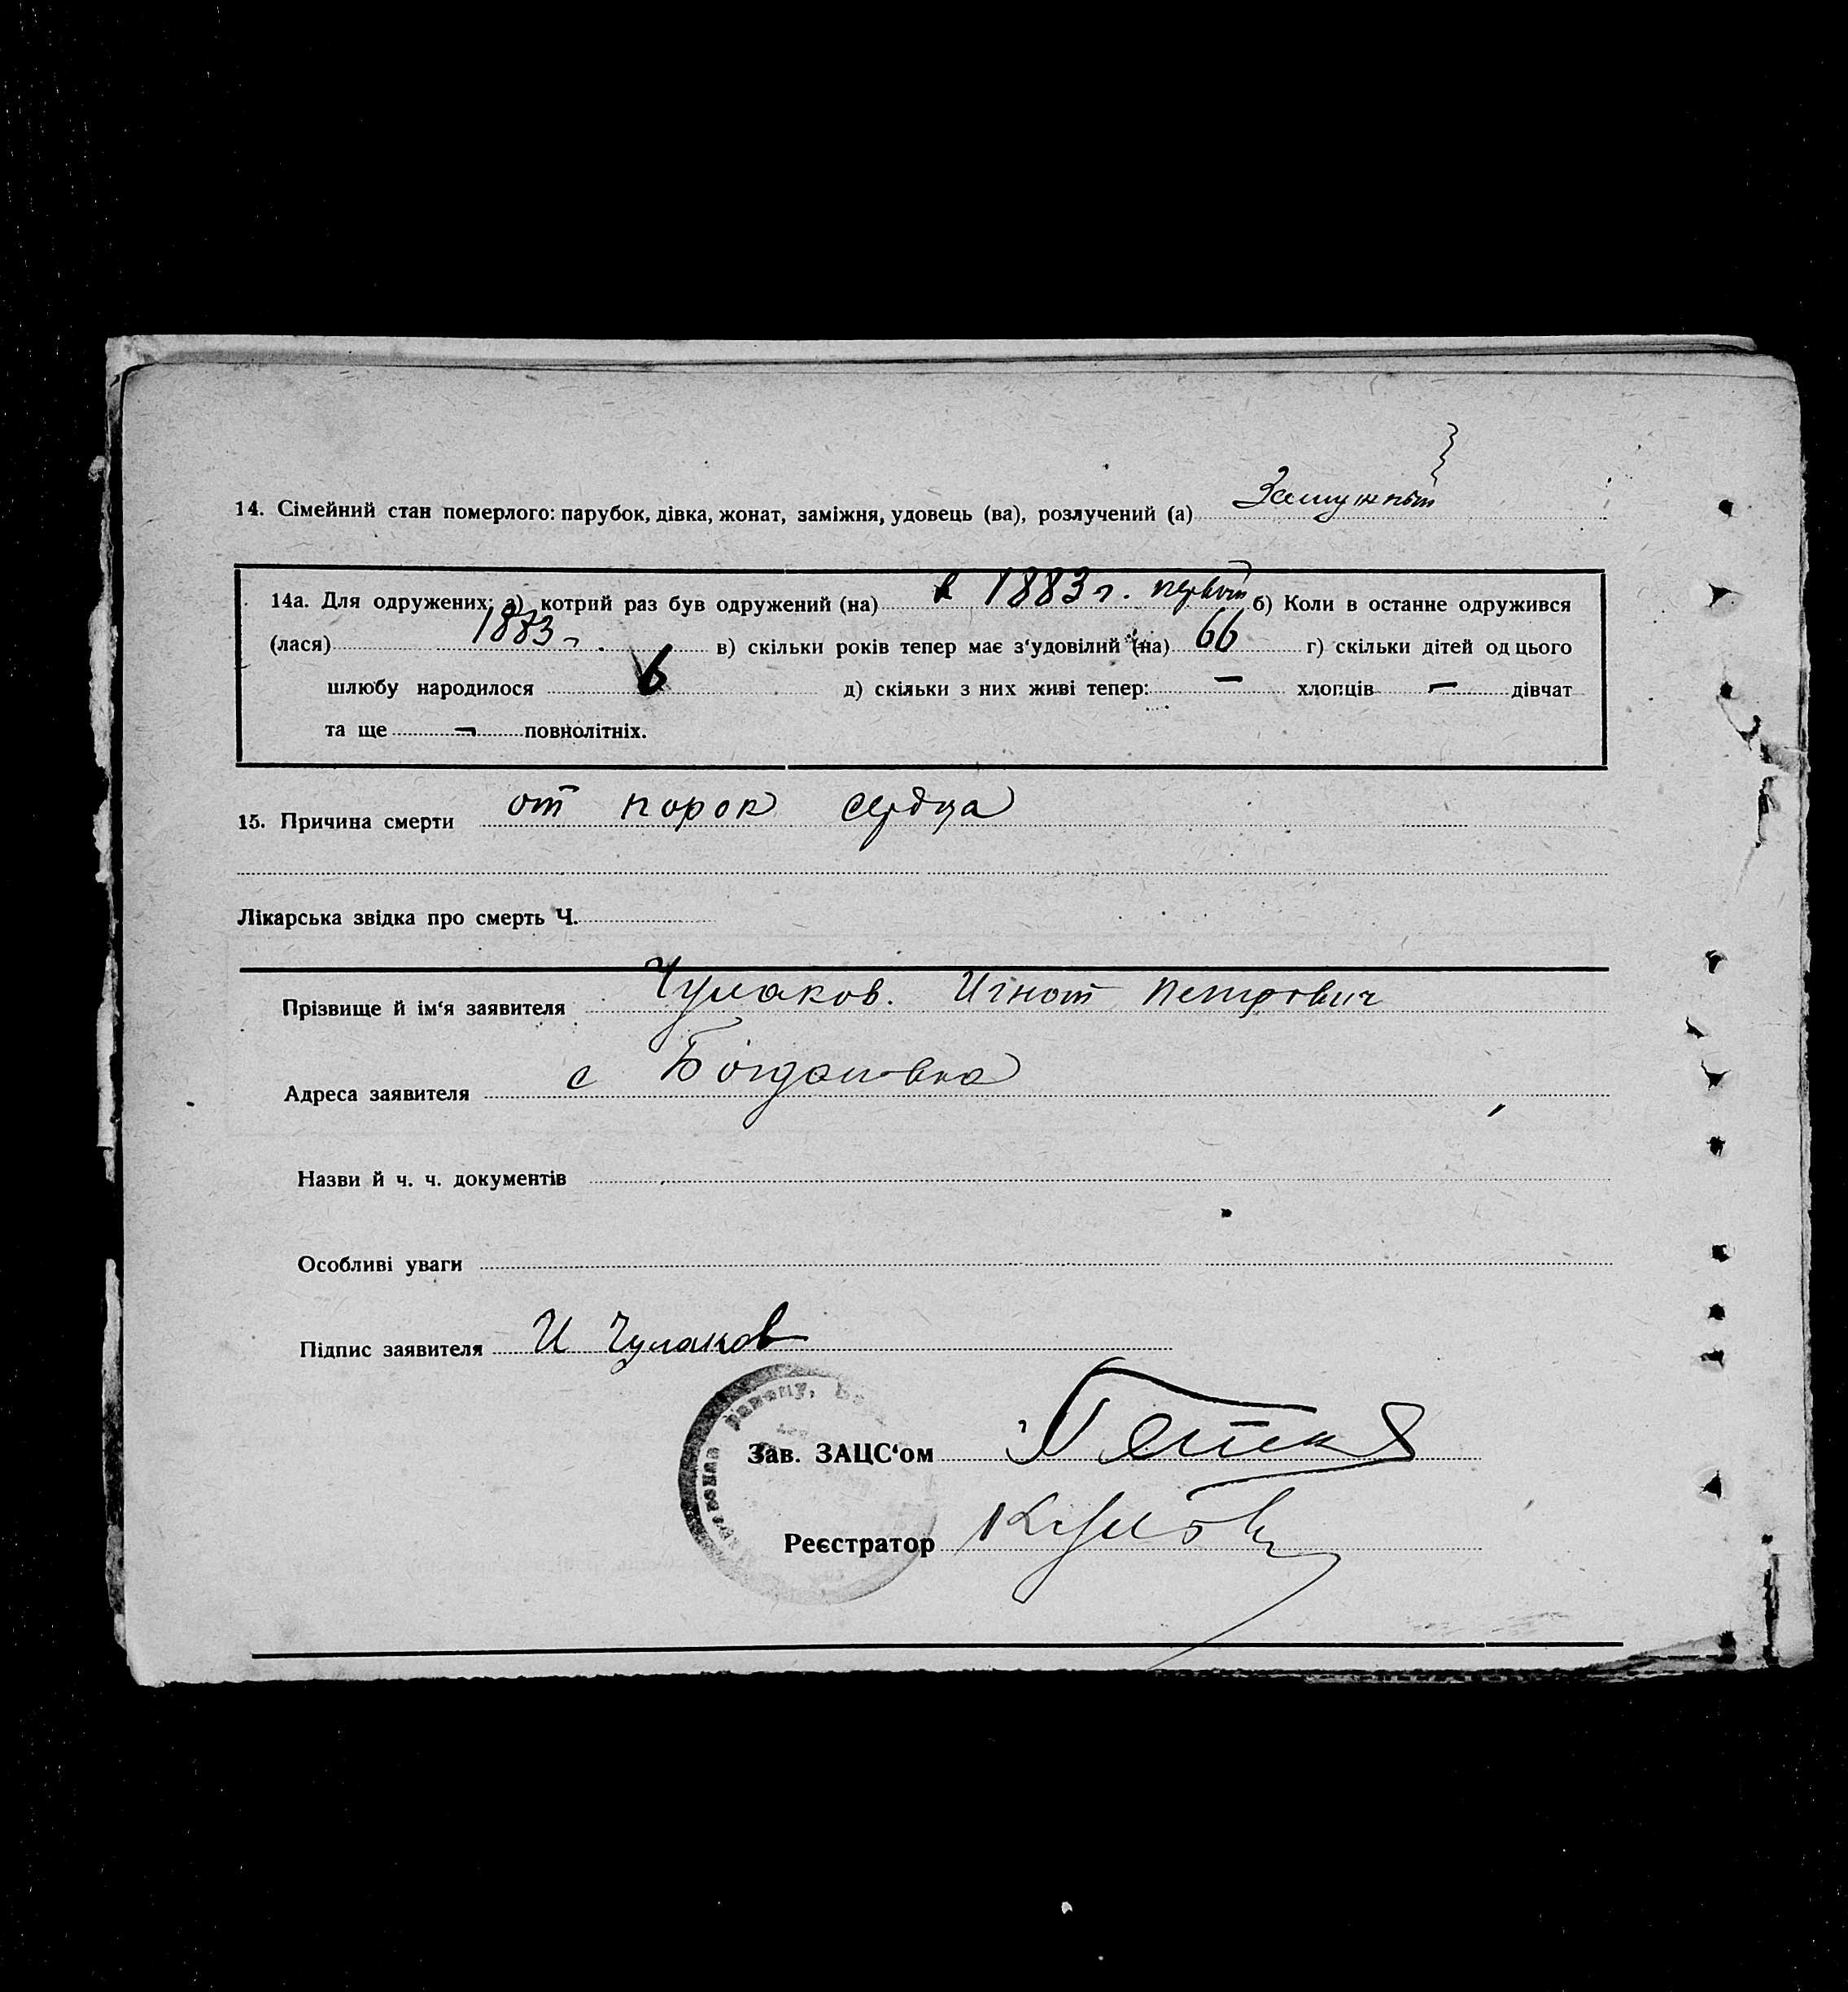 14. Сімейний стан померлого: парубок, дівка, жонат, заміжня, удовець (ва), розлучений (а) Замужный
14а. Для одружених: а) котрий раз був одружений (на) в 1883 г. первый б) Коли в останне одружився
(лася) 1883 г. в) скільки років тепер має з‘удовілий (на) 66 г) скільки дітей од цього
шлюбу народилося 6 д) скільки з них живі тепер: — хлопців — дівчат
та ще — повнолітніх.
15. Причина смерти от порок сердца
Лікарська звідка про смерть Ч.
Прізвище й ім‘я заявителя Чумаков. Игнат Петрович
Адреса заявителя с Богдановка
Назви й ч. ч. документів
Особливі уваги
Підпис заявителя И Чумаков
Зав. ЗАЦС‘ом
Реєстратор